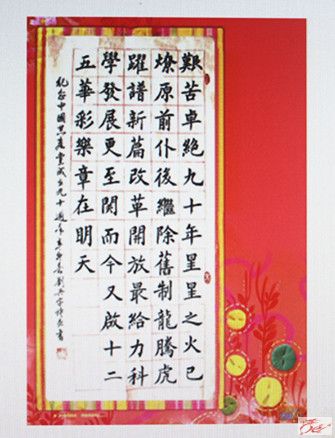 艱苦卓絶九十年星星之火已
燎原前仆後繼除舊制龍騰虎
躍譜新篇改革開放最給力科
學發展更至関而今又啟十二
五華彩樂章在明天
紀念中國共産黨成立九十週年辛卯春劉書